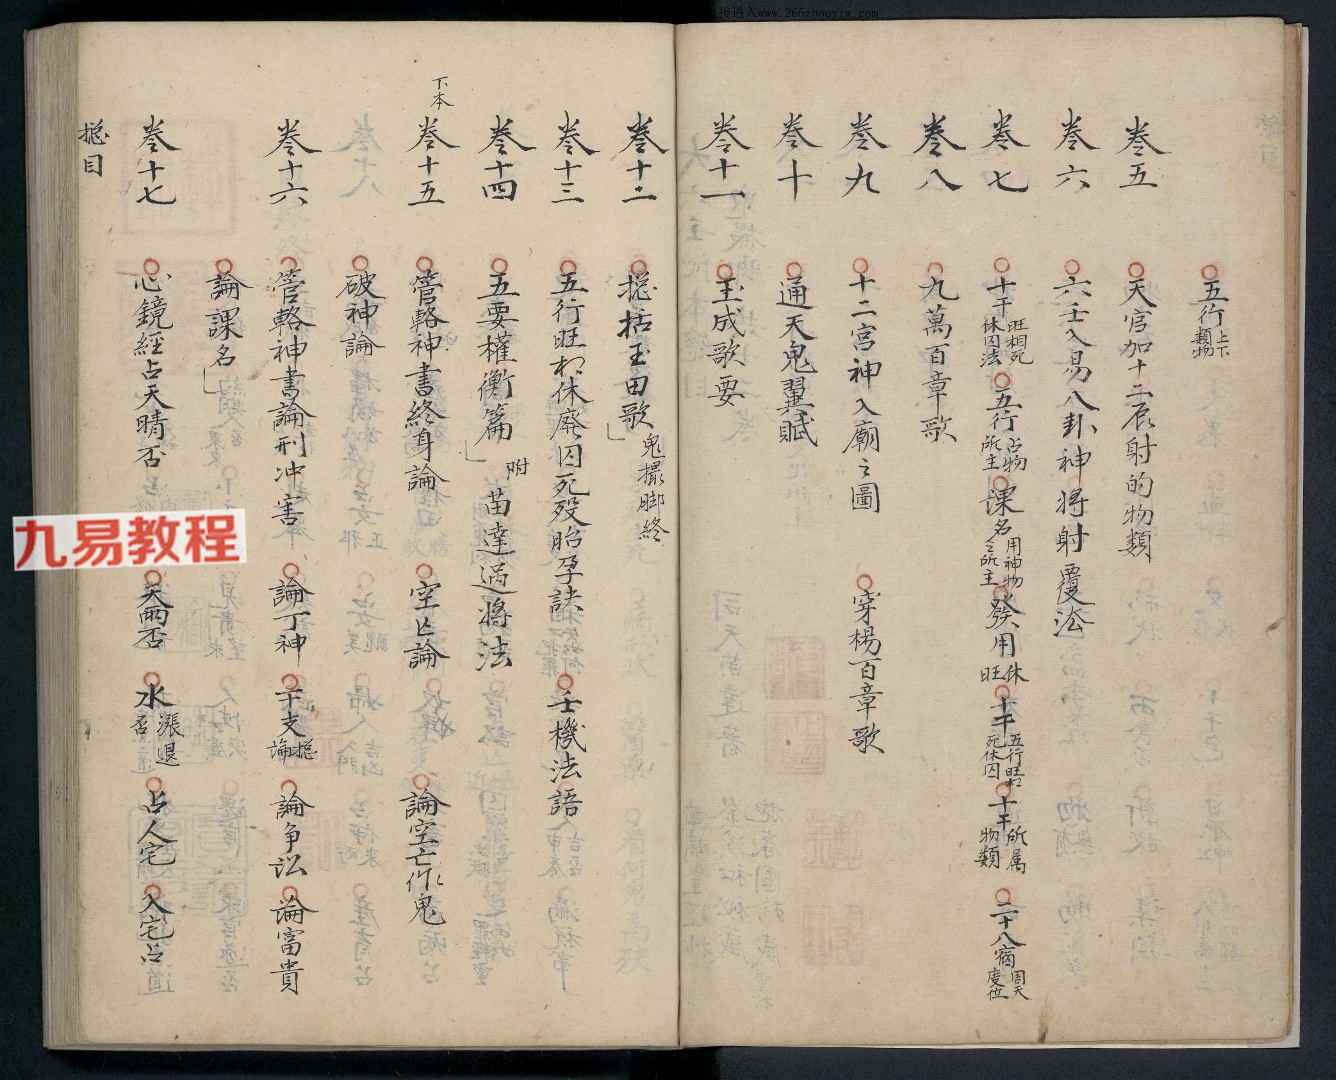 五行上下類物
卷五 天官加十二辰射的物類
卷六 六壬入易八卦神將射覆法
卷七 十干旺相死休囚法 五行占物所主 課名用神物之所主 發用休旺 十干五行旺死休囚 十干所属物類 二十八宿周天度位
卷八 九萬百章歌
卷九 十二宮神入廟之圖 穿楊百章歌
卷十 通天鬼翼賦
卷十一 玉成歌要
卷十二 捴括玉田歌 鬼撮脚終
卷十三 五行旺相休廢囚死殁胎孕訣 壬機法語
卷十四 五要權衡篇 附 苗達過將法
下本 卷十五 管輅神書終身論 空亡論 論空亡作鬼
破神論
卷十六 管輅神書論刑冲害 論丁神 干支捴論 論争訟 論富貴
論課名
卷十七 心鏡經占天晴否 天雨否 水漲退否 占人宅 入宅占
捴目
九易教程
www.266zhouyiw.com